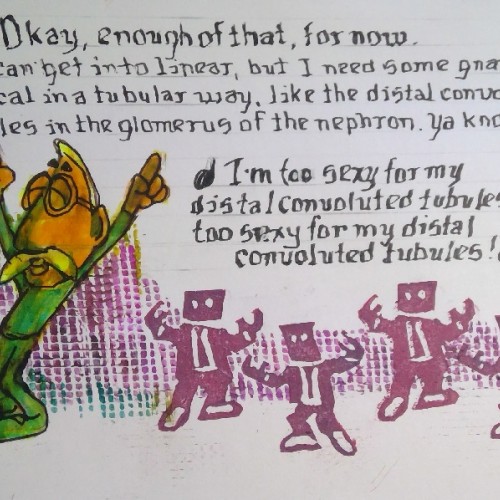 Okay, enough of that, for now.
can get into linear, but I need some
cal in a tubular way, like the distal
les in the glomerus of the nephron. Ya
I'm too sexy for my
distal convoluted tubules
too sexy for my distal
convoluted tubules!